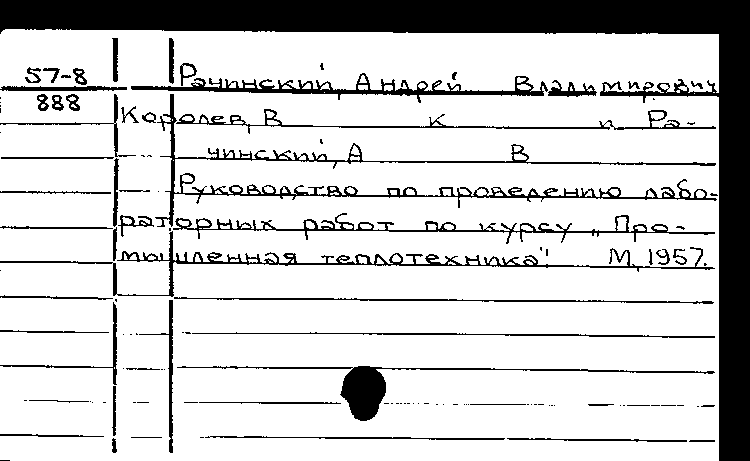 57-8
888
Рачинский, Андрей Владимирович
Королев, В К и Ра-
чинский, А В
Руководство по проведению лабо-
раторных работ по курсу „Про-
мышленная теплотехника". М, 1957.